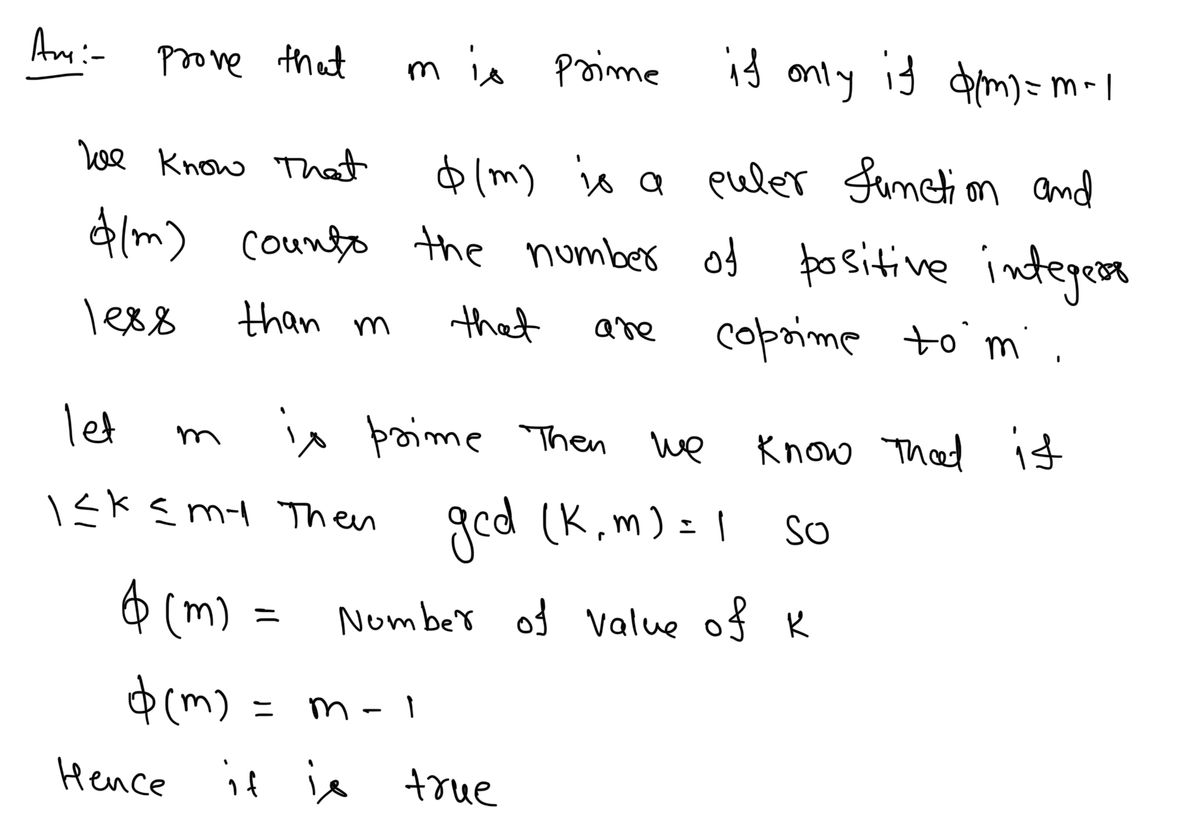 Ans:- Prove that m is Prime if only if ϕ(m)=m-1
We Know That ϕ(m) is a euler function and
ϕ(m) counts the number of positive integers
less than m that are coprime to 'm'.
let m is prime Then we Know That if
1≤k≤m-1 Then gcd (K,m)=1 so
ϕ(m) = Number of value of K
ϕ(m) = m-1
Hence it is true